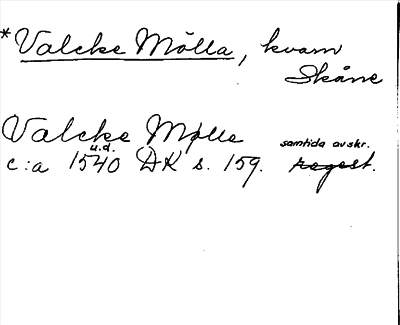 *Valcke Mölla, kvarn
Skåne
Valcke Mølle samtida avskr.
u.d.
c:a 1540 DK s. 159. regest.